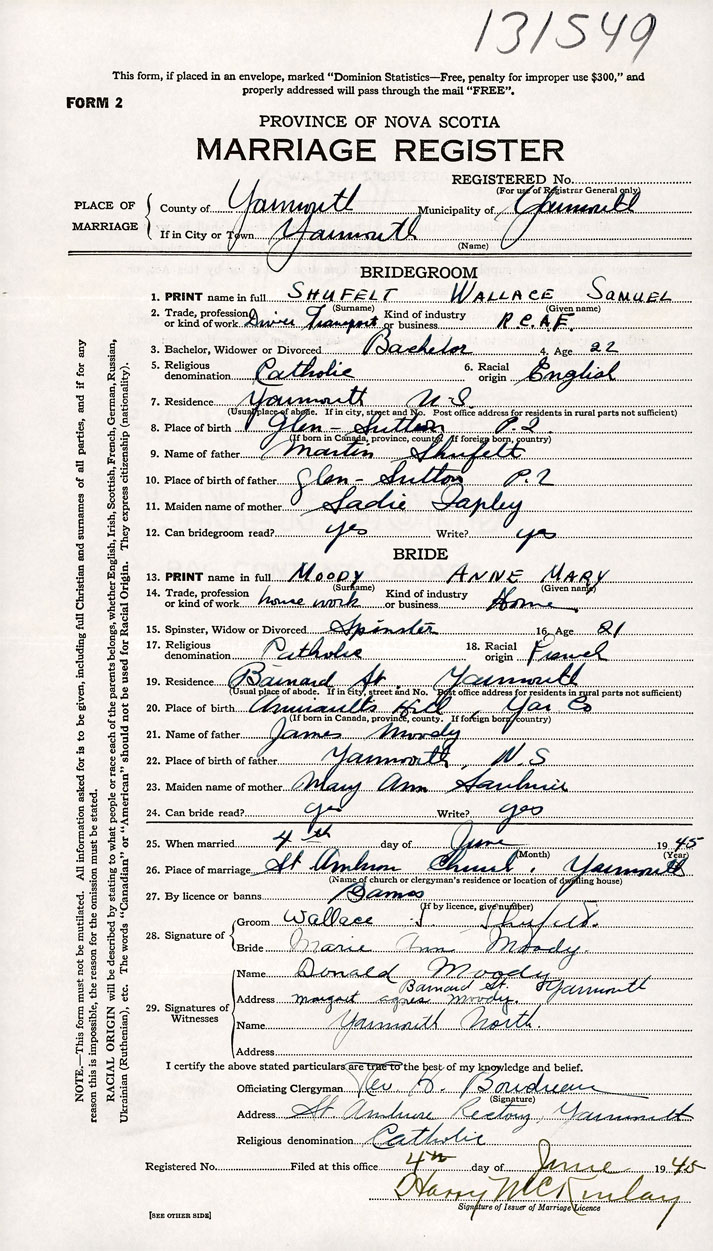 131549
This form, if placed in an envelope, marked "Dominion Statistics—Free, penalty for improper use $300," and
properly addressed will pass through the mail "FREE".
FORM 2
PROVINCE OF NOVA SCOTIA
MARRIAGE REGISTER
REGISTERED No.
(For use of Registrar General only)
PLACE OF MARRIAGE
County of Yarmouth Municipality of Yarmouth
If in City or Town Yarmouth
(Name)
BRIDEGROOM
1. PRINT name in full SHUFELT WALLACE SAMUEL
(Surname) (Given name)
2. Trade, profession or kind of work Driver Transport Kind of industry or business R.C.A.F.
3. Bachelor, Widower or Divorced Bachelor 4. Age 22
5. Religious denomination Catholic 6. Racial origin English
7. Residence Yarmouth N.S.
(Usual place of abode. If in city, street and No. Post office address for residents in rural parts not sufficient)
8. Place of birth Glen-Sutton P.Q.
(If born in Canada, province, county. If foreign born, country)
9. Name of father Martin Shufelt
10. Place of birth of father Glen-Sutton P.Q
11. Maiden name of mother Sadie Tapley
12. Can bridegroom read? yes Write? yes
BRIDE
13. PRINT name in full MOODY ANNE MARY
(Surname) (Given name)
14. Trade, profession or kind of work house work Kind of industry or business Home
15. Spinster, Widow or Divorced Spinster 16. Age 21
17. Religious denomination Catholic 18. Racial origin French
19. Residence Barnard St. Yarmouth
(Usual place of abode. If in city, street and No. Post office address for residents in rural parts not sufficient)
20. Place of birth Amiraults Hill, Yar Co
(If born in Canada, province, county. If foreign born, country)
21. Name of father James Moody
22. Place of birth of father Yarmouth, N.S
23. Maiden name of mother Mary Ann Saulnier
24. Can bride read? yes Write? yes
25. When married 4th day of June 1945
(Month) (Year)
26. Place of marriage St Ambrose Church, Yarmouth
(Name of church or clergyman's residence or location of dwelling house)
27. By licence or banns Banns
(If by licence, give number)
28. Signature of
Groom Wallace S Shufelt.
Bride Marie Ann Moody.
29. Signatures of Witnesses
Name Donald Moody
Barnard St. Yarmouth
Address Margaret Agnes Moody.
Name Yarmouth North.
Address
I certify the above stated particulars are true to the best of my knowledge and belief.
Officiating Clergyman Rev H. Boudreau
(Signature)
Address St. Ambrose Rectory, Yarmouth
Religious denomination Catholic
Registered No. Filed at this office 4th day of June 1945
Harry McKinlay
Signature of Issuer of Marriage Licence
[SEE OTHER SIDE]
NOTE.—This form must not be mutilated. All information asked for is to be given, including full Christian and surnames of all parties, and if for any
reason this is impossible, the reason for the omission must be stated.
RACIAL ORIGIN will be described by stating to what people or race each of the parents belongs, whether English, Irish, Scottish, French, German, Russian,
Ukrainian (Ruthenian), etc. The words "Canadian" or "American" should not be used for Racial Origin. They express citizenship (nationality).